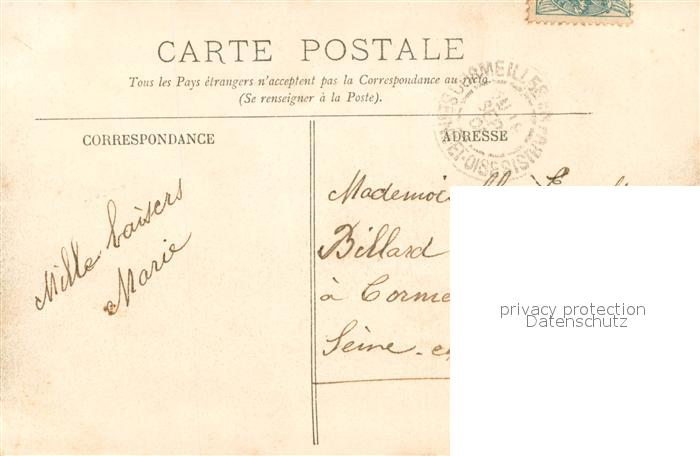 CARTE POSTALE
Tous les Pays étrangers n'acceptent pas la Correspondance au recto
(Se renseigner à la Poste).
CORRESPONDANCE
ADRESSE
Mille baisers
Marie
Billard
à
Seine-
privacy protection
Datenschutz